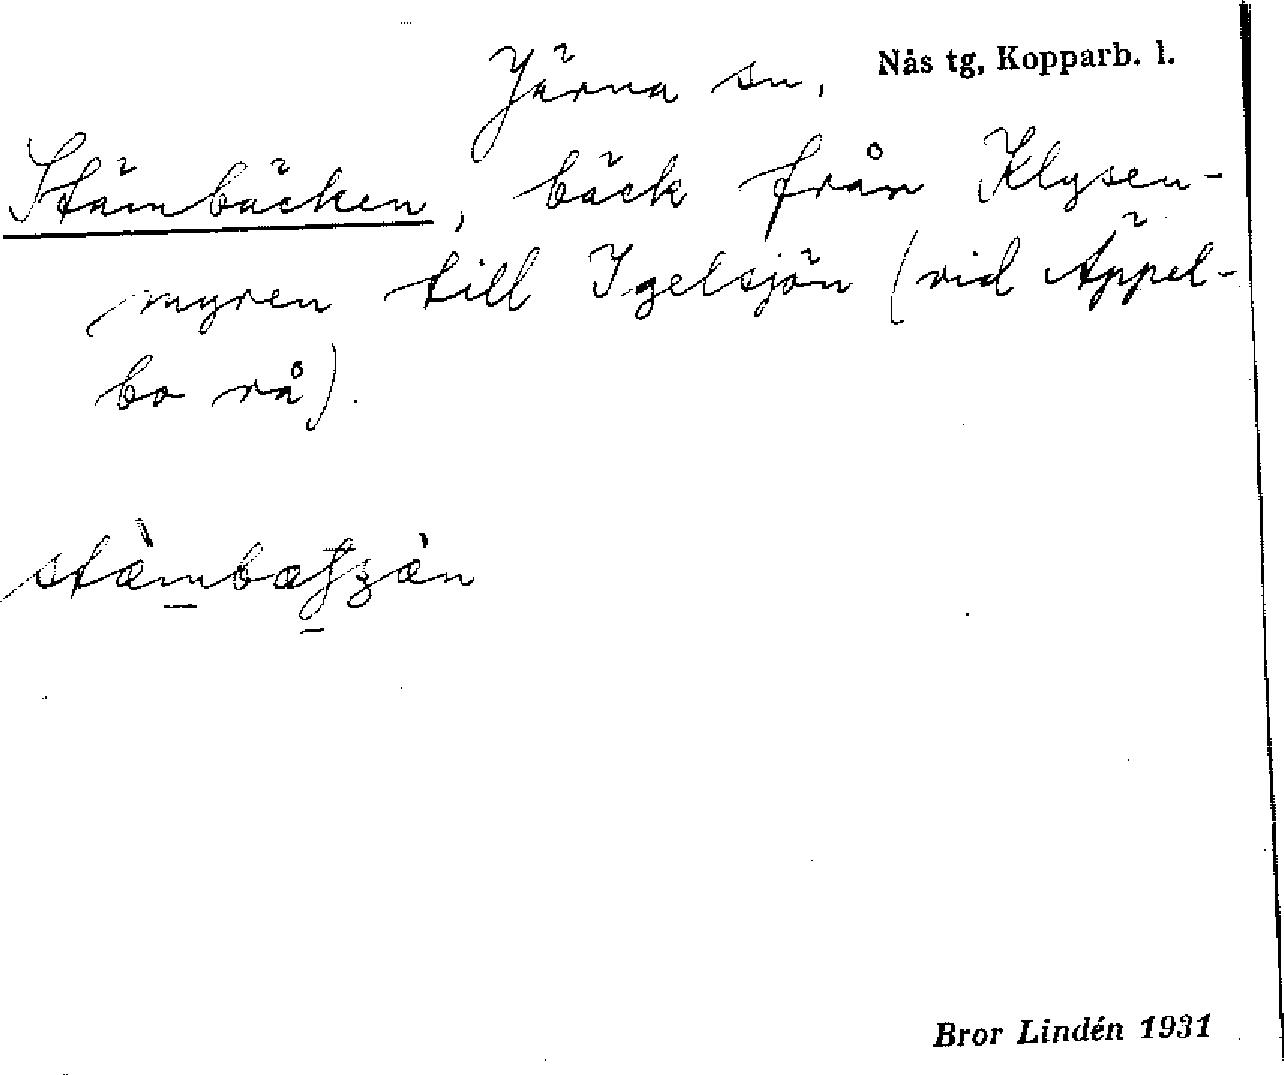 Järna sn, Nås tg, Kopparb. l.
Stämbäcken, bäck från Klysen-
myren till Igelsjön (vid Äppel-
bo rå).
Bror Lindén 1931